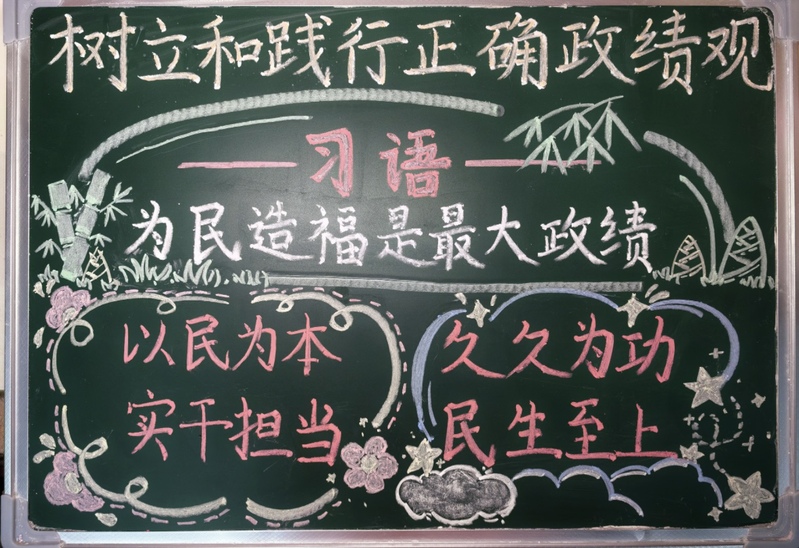 树立和践行正确政绩观
习语
为民造福是最大政绩
以民为本
实干担当
久久为功
民生至上